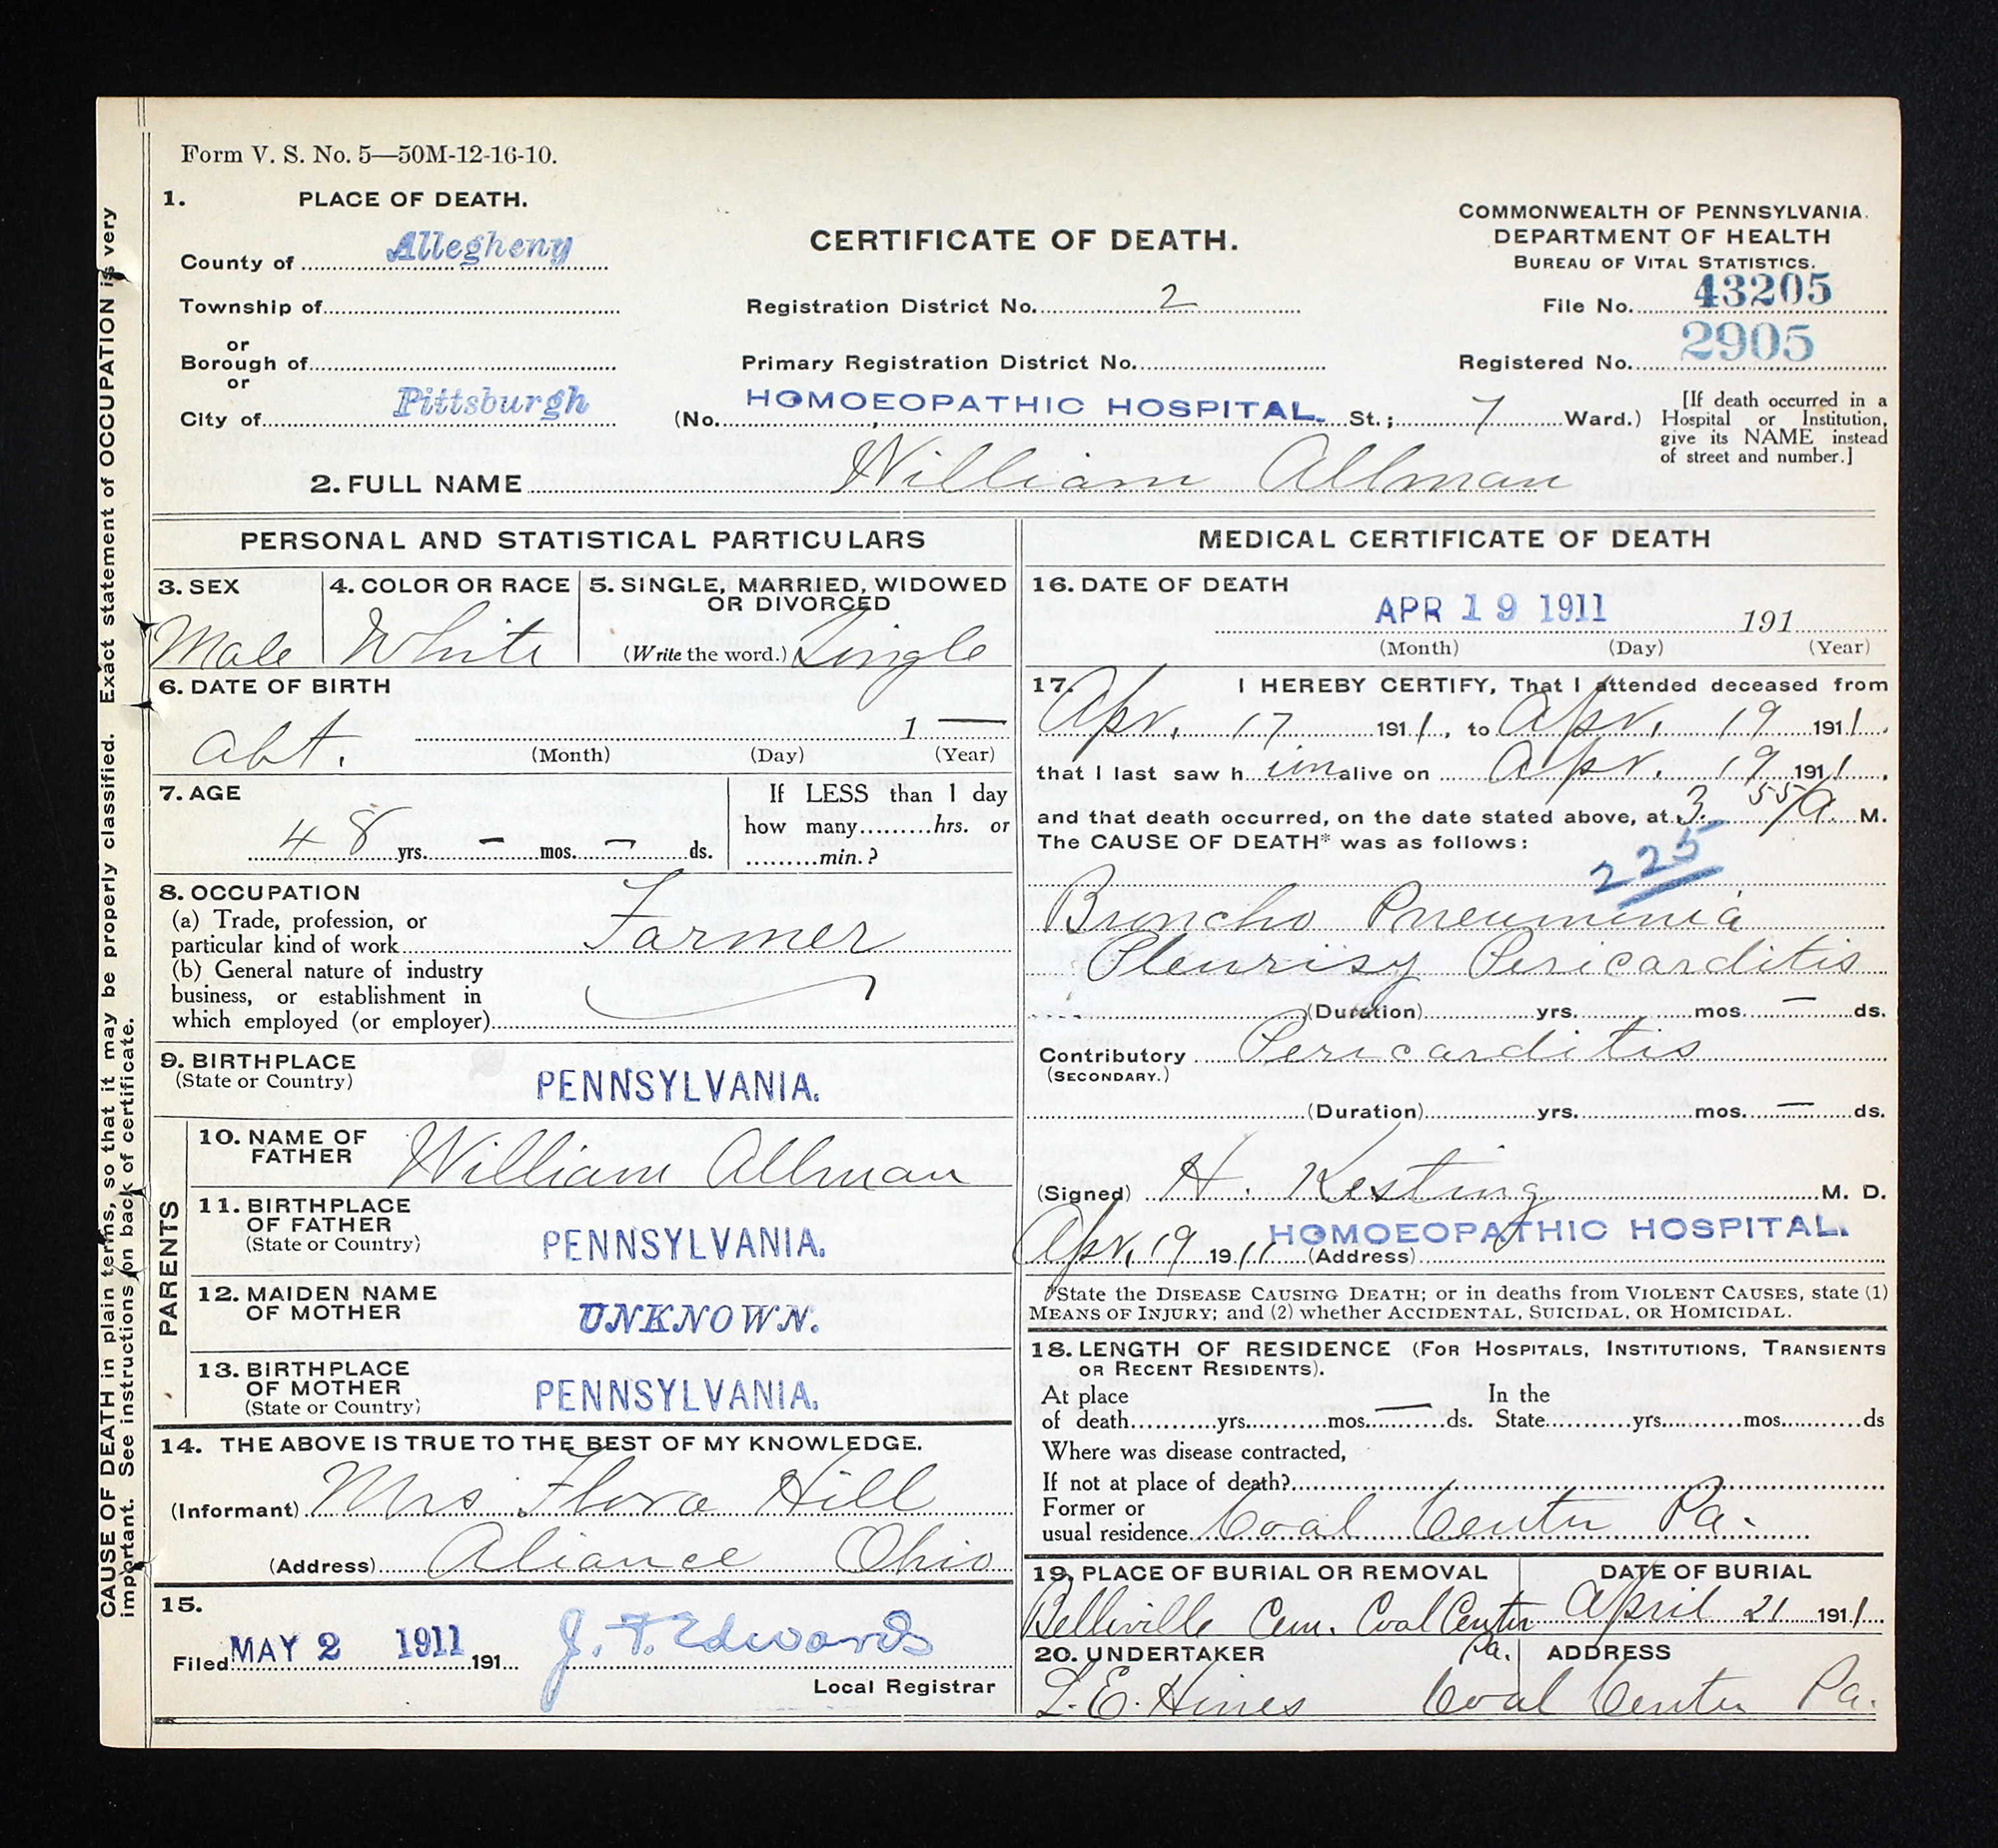 Form V. S. No. 5—50M-12-16-10.
1. PLACE OF DEATH.
County of Allegheny
Township of
or
Borough of
or
City of Pittsburgh
CERTIFICATE OF DEATH.
Registration District No. 2
Primary Registration District No.
(No. HOMOEOPATHIC HOSPITAL. St.; 7 Ward.)
COMMONWEALTH OF PENNSYLVANIA.
DEPARTMENT OF HEALTH
BUREAU OF VITAL STATISTICS.
File No. 43205
Registered No. 2905
[If death occurred in a
Hospital or Institution,
give its NAME instead
of street and number.]
2. FULL NAME William Allman
PERSONAL AND STATISTICAL PARTICULARS
3. SEX
Male
4. COLOR OR RACE
White
5. SINGLE, MARRIED, WIDOWED
OR DIVORCED
(Write the word.) Single
6. DATE OF BIRTH
abt. 1 —
(Month) (Day) (Year)
7. AGE
48 yrs. — mos. — ds.
If LESS than 1 day
how many hrs. or
min.?
8. OCCUPATION
(a) Trade, profession, or
particular kind of work Farmer
(b) General nature of industry
business, or establishment in
which employed (or employer)
9. BIRTHPLACE
(State or Country)
PENNSYLVANIA.
PARENTS
10. NAME OF
FATHER William Allman
11. BIRTHPLACE
OF FATHER
(State or Country) PENNSYLVANIA.
12. MAIDEN NAME
OF MOTHER UNKNOWN.
13. BIRTHPLACE
OF MOTHER
(State or Country) PENNSYLVANIA.
14. THE ABOVE IS TRUE TO THE BEST OF MY KNOWLEDGE.
(Informant) Mrs Flora Hill
(Address) Aliance Ohio
15.
Filed MAY 2 1911 191 J. F. Edwards
Local Registrar
MEDICAL CERTIFICATE OF DEATH
16. DATE OF DEATH
APR 19 1911 191
(Month) (Day) (Year)
17. I HEREBY CERTIFY, That I attended deceased from
Apr. 17 1911, to Apr. 19 1911,
that I last saw h im alive on Apr. 19 1911,
and that death occurred, on the date stated above, at 3.55 a. M.
The CAUSE OF DEATH* was as follows:
225
Broncho Pneumonia
Pleurisy Pericarditis
(Duration) yrs. mos. — ds.
Contributory Pericarditis
(SECONDARY.)
(Duration) yrs. mos. — ds.
(Signed) H. Kesting M. D.
Apr. 19 1911 (Address) HOMOEOPATHIC HOSPITAL.
*State the DISEASE CAUSING DEATH; or in deaths from VIOLENT CAUSES, state (1)
MEANS OF INJURY; and (2) whether ACCIDENTAL, SUICIDAL, OR HOMICIDAL.
18. LENGTH OF RESIDENCE (FOR HOSPITALS, INSTITUTIONS, TRANSIENTS
OR RECENT RESIDENTS).
At place In the
of death yrs. mos. — ds. State yrs. mos. ds
Where was disease contracted,
If not at place of death?
Former or
usual residence Coal Center Pa.
19. PLACE OF BURIAL OR REMOVAL
Belleville Cem. Coal Center
Pa.
DATE OF BURIAL
April 21 1911
20. UNDERTAKER
L. E. Hines
ADDRESS
Coal Center Pa.
CAUSE OF DEATH in plain terms, so that it may be properly classified. Exact statement of OCCUPATION is very
important. See instructions on back of certificate.